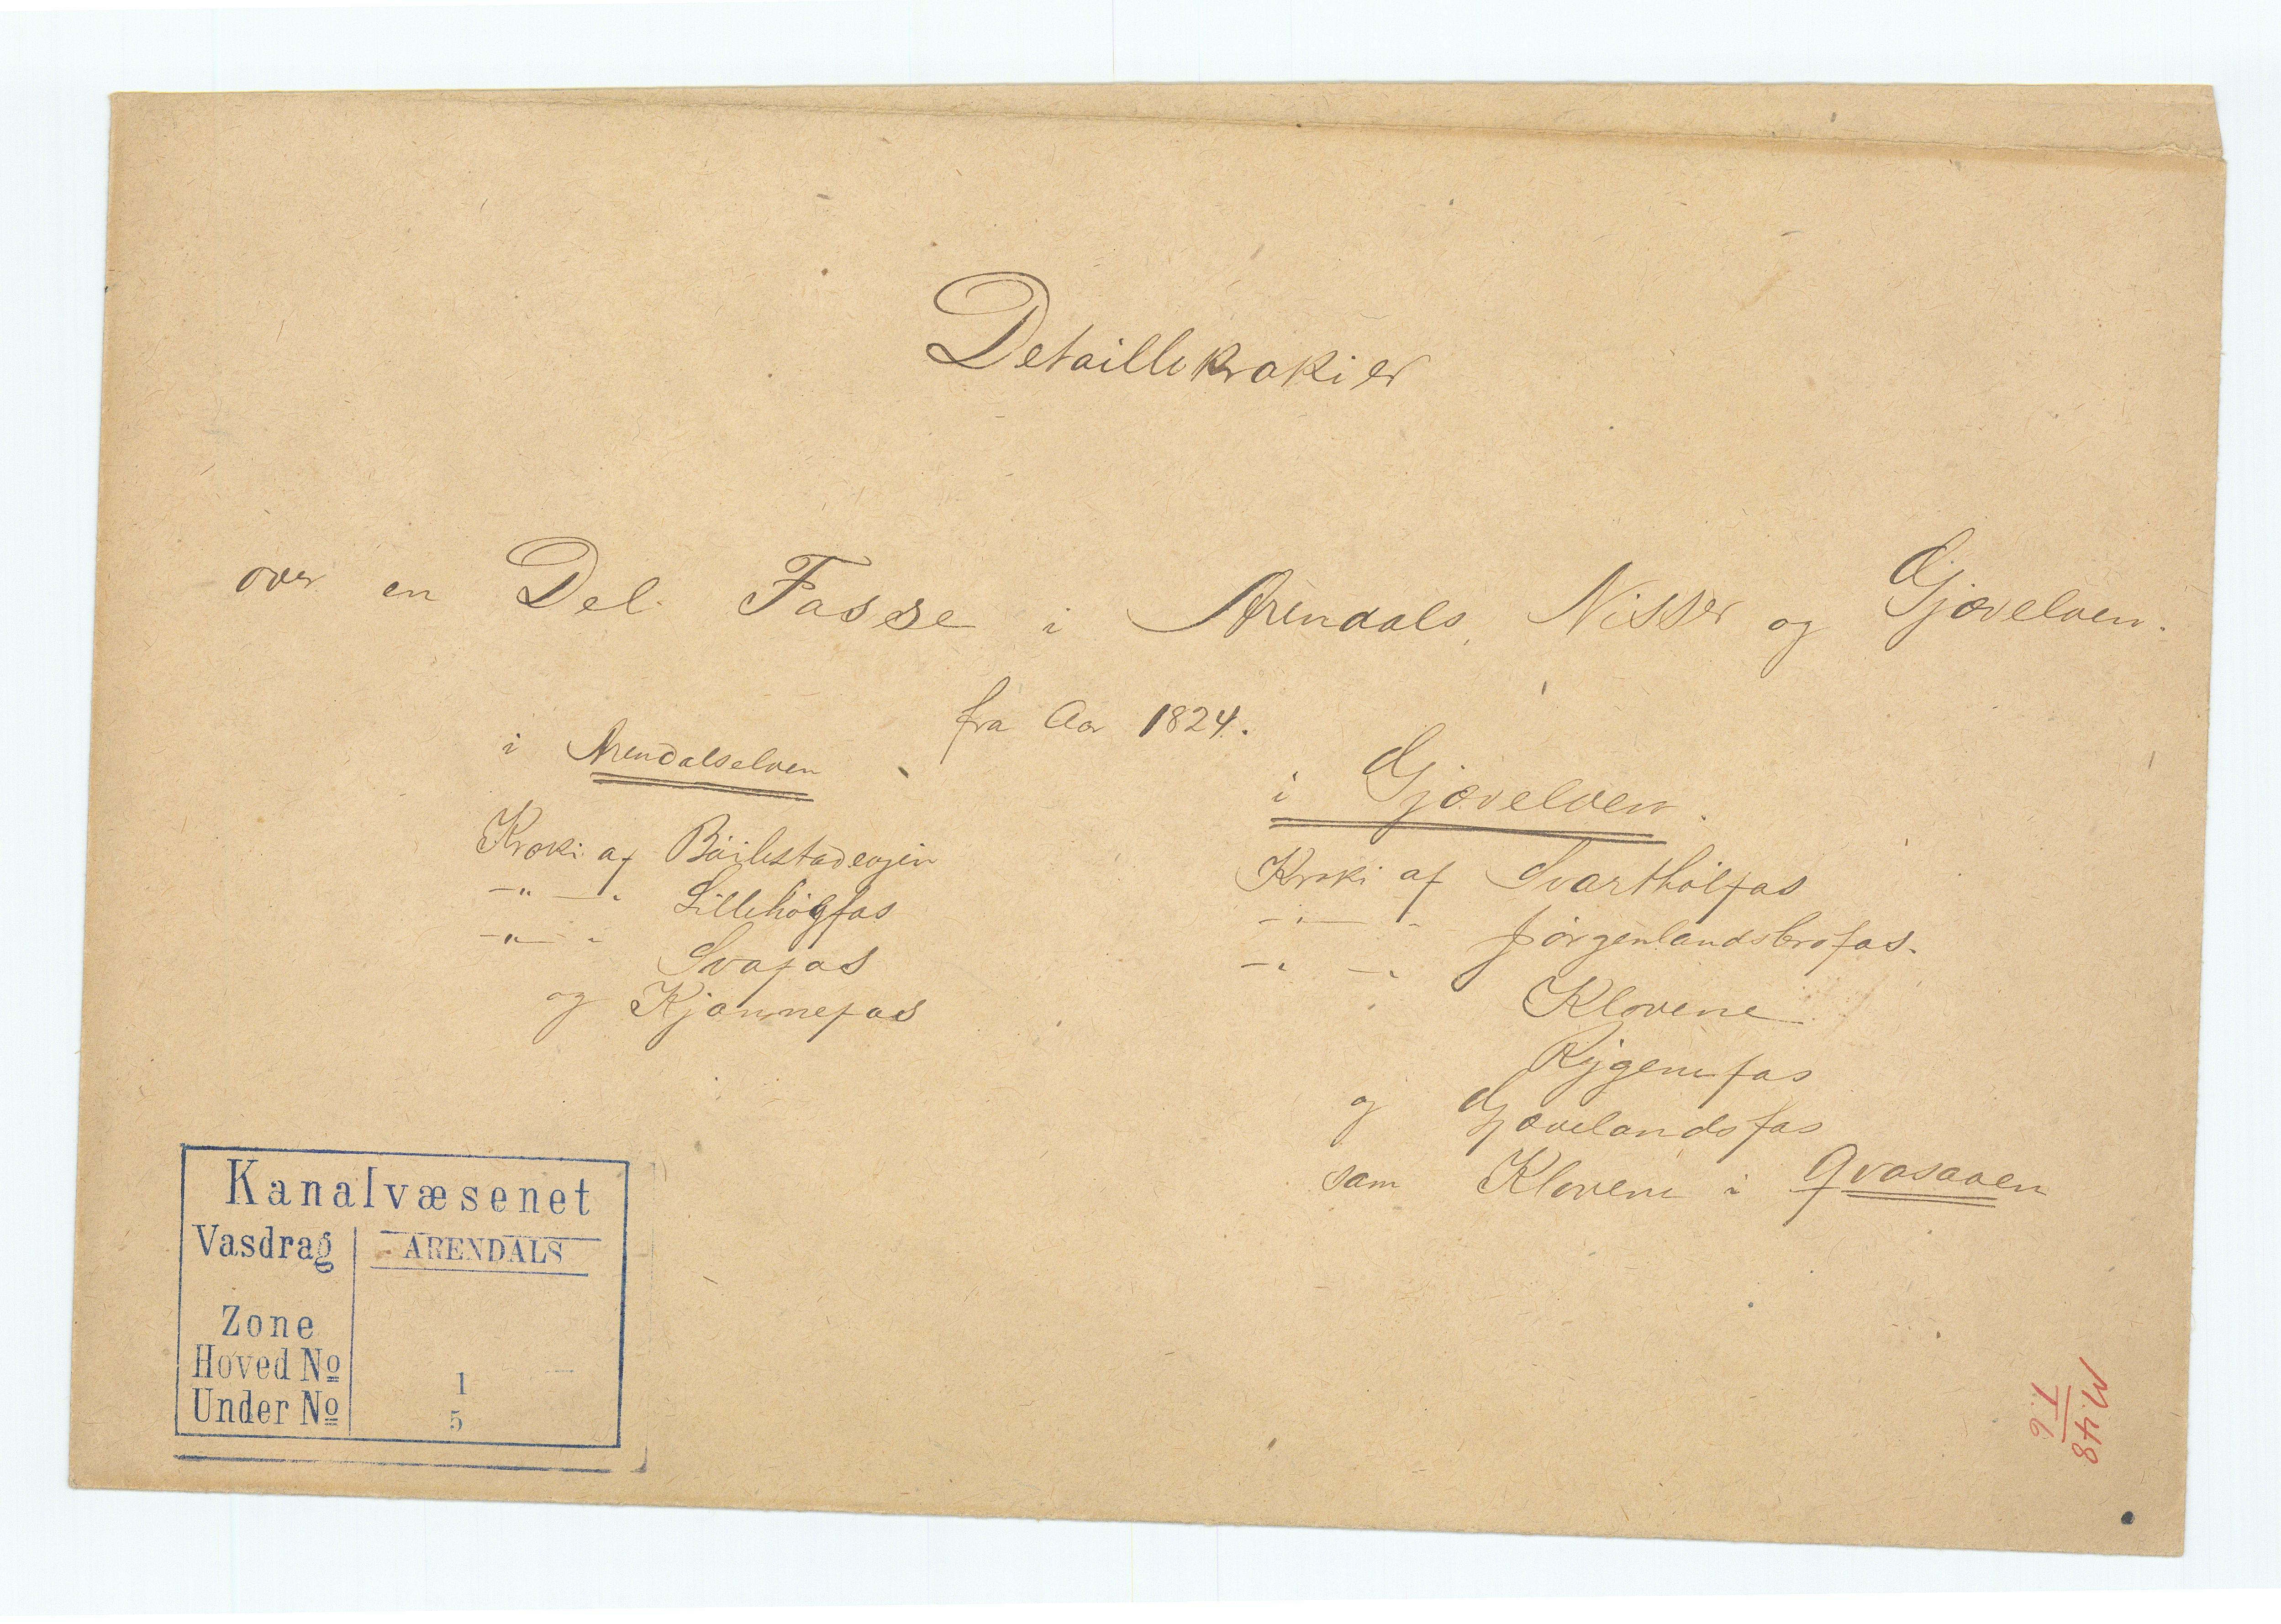 Detaillekrokier
over en Del Fosse i Arendals, Nisser og Gjøvelven.
fra Aar 1824.
i Arendalselven
Kroki af Böilestadevjen
—"— " Lillehölfos
—"— " Svafos
og Kjonnefos
i Gjövelven.
Kroki af Svarthölfos
—"— " Jörgenlandsbrofos.
—"— " Klovene
Rygenefos
og Gjövelandsfos
sam Klovene i Qvosaaen
Kanalvæsenet
Vasdrag ARENDALS
Zone
Hoved No 1
Under No 5
M.48
T.6